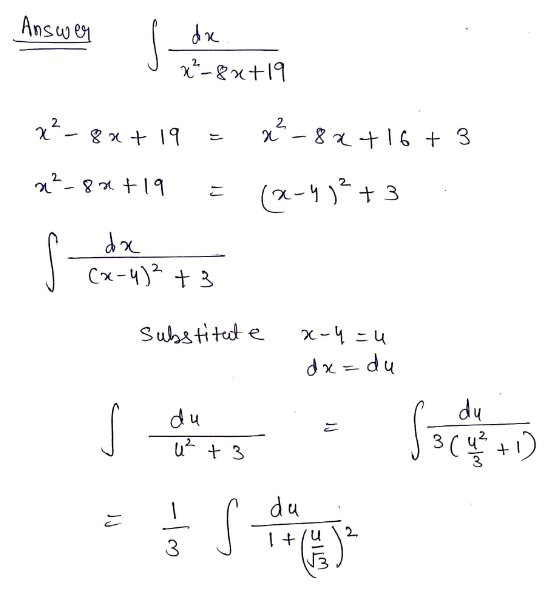 Answer ∫ dx / x² - 8x + 19
x² - 8x + 19 = x² - 8x + 16 + 3
x² - 8x + 19 = (x-4)² + 3
∫ dx / (x-4)² + 3
Substitute x-4 = u
dx = du
∫ du / u² + 3 = ∫ du / 3(u²/3 + 1)
= 1/3 ∫ du / 1 + (u/√3)²